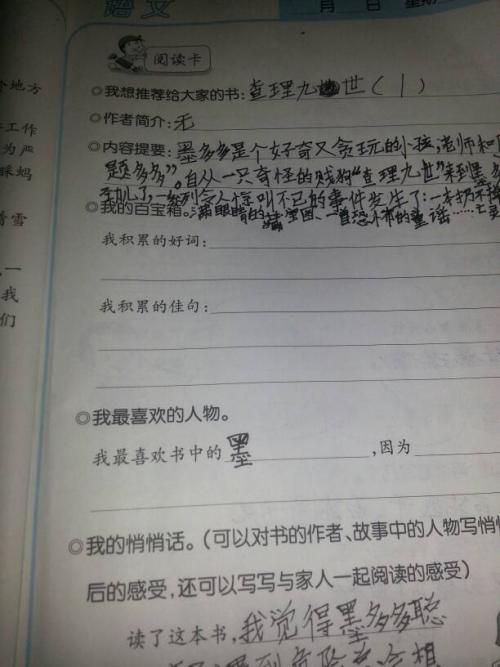 语文
月 日 星期
阅读卡
个地方
◎我想推荐给大家的书:查理九世(1)
◎作者简介:无
工作
◎内容提要:墨多多是个好奇又贪玩的小孩,老师和
为严
题多多”。自从一只奇怪的贱狗“查理九世”来到墨多
令人惊叫不已的事件发生了:一本扔不掉
◎我的百宝箱。满眼睛的 一首恐怖的童谣……
我积累的好词:
雪
我积累的佳句:
一
我
们
◎我最喜欢的人物。
我最喜欢书中的墨,因为
◎我的悄悄话。(可以对书的作者、故事中的人物写悄悄
后的感受,还可以写写与家人一起阅读的感受)
读了这本书,我觉得墨多多聪